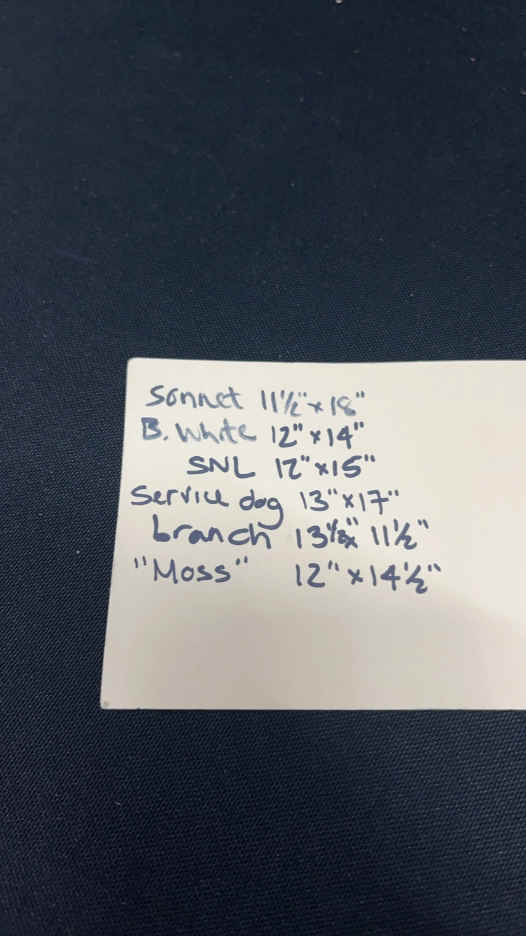 Sonnet 11½" x 18"
B. White 12" x 14"
SNL 12" x 15"
Service dog 13" x 17"
branch 13½" x 11½"
"Moss" 12" x 14½"